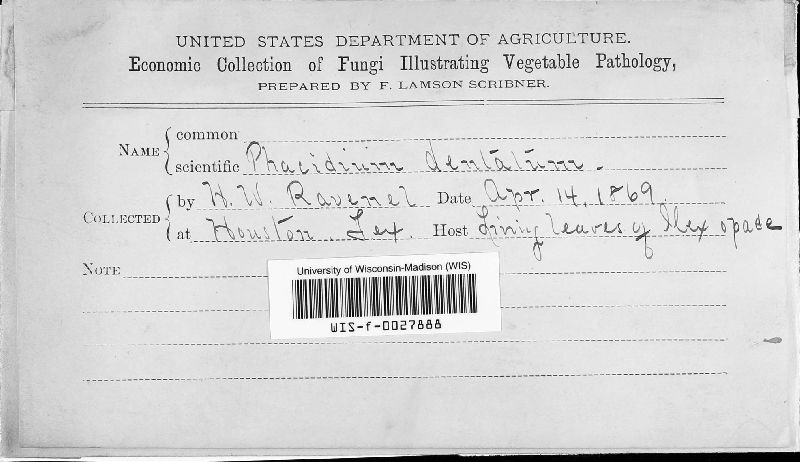 UNITED STATES DEPARTMENT OF AGRICULTURE.
Economic Collection of Fungi Illustrating Vegetable Pathology,
PREPARED BY F. LAMSON SCRIBNER.
NAME { common
scientific Phacidium dentatum.
COLLECTED { by H. W. Ravenel Date Apr. 14, 1869.
at Houston Tex. Host Living leaves of Ilex opace
NOTE
University of Wisconsin-Madison (WIS)
WIS-f-0027888